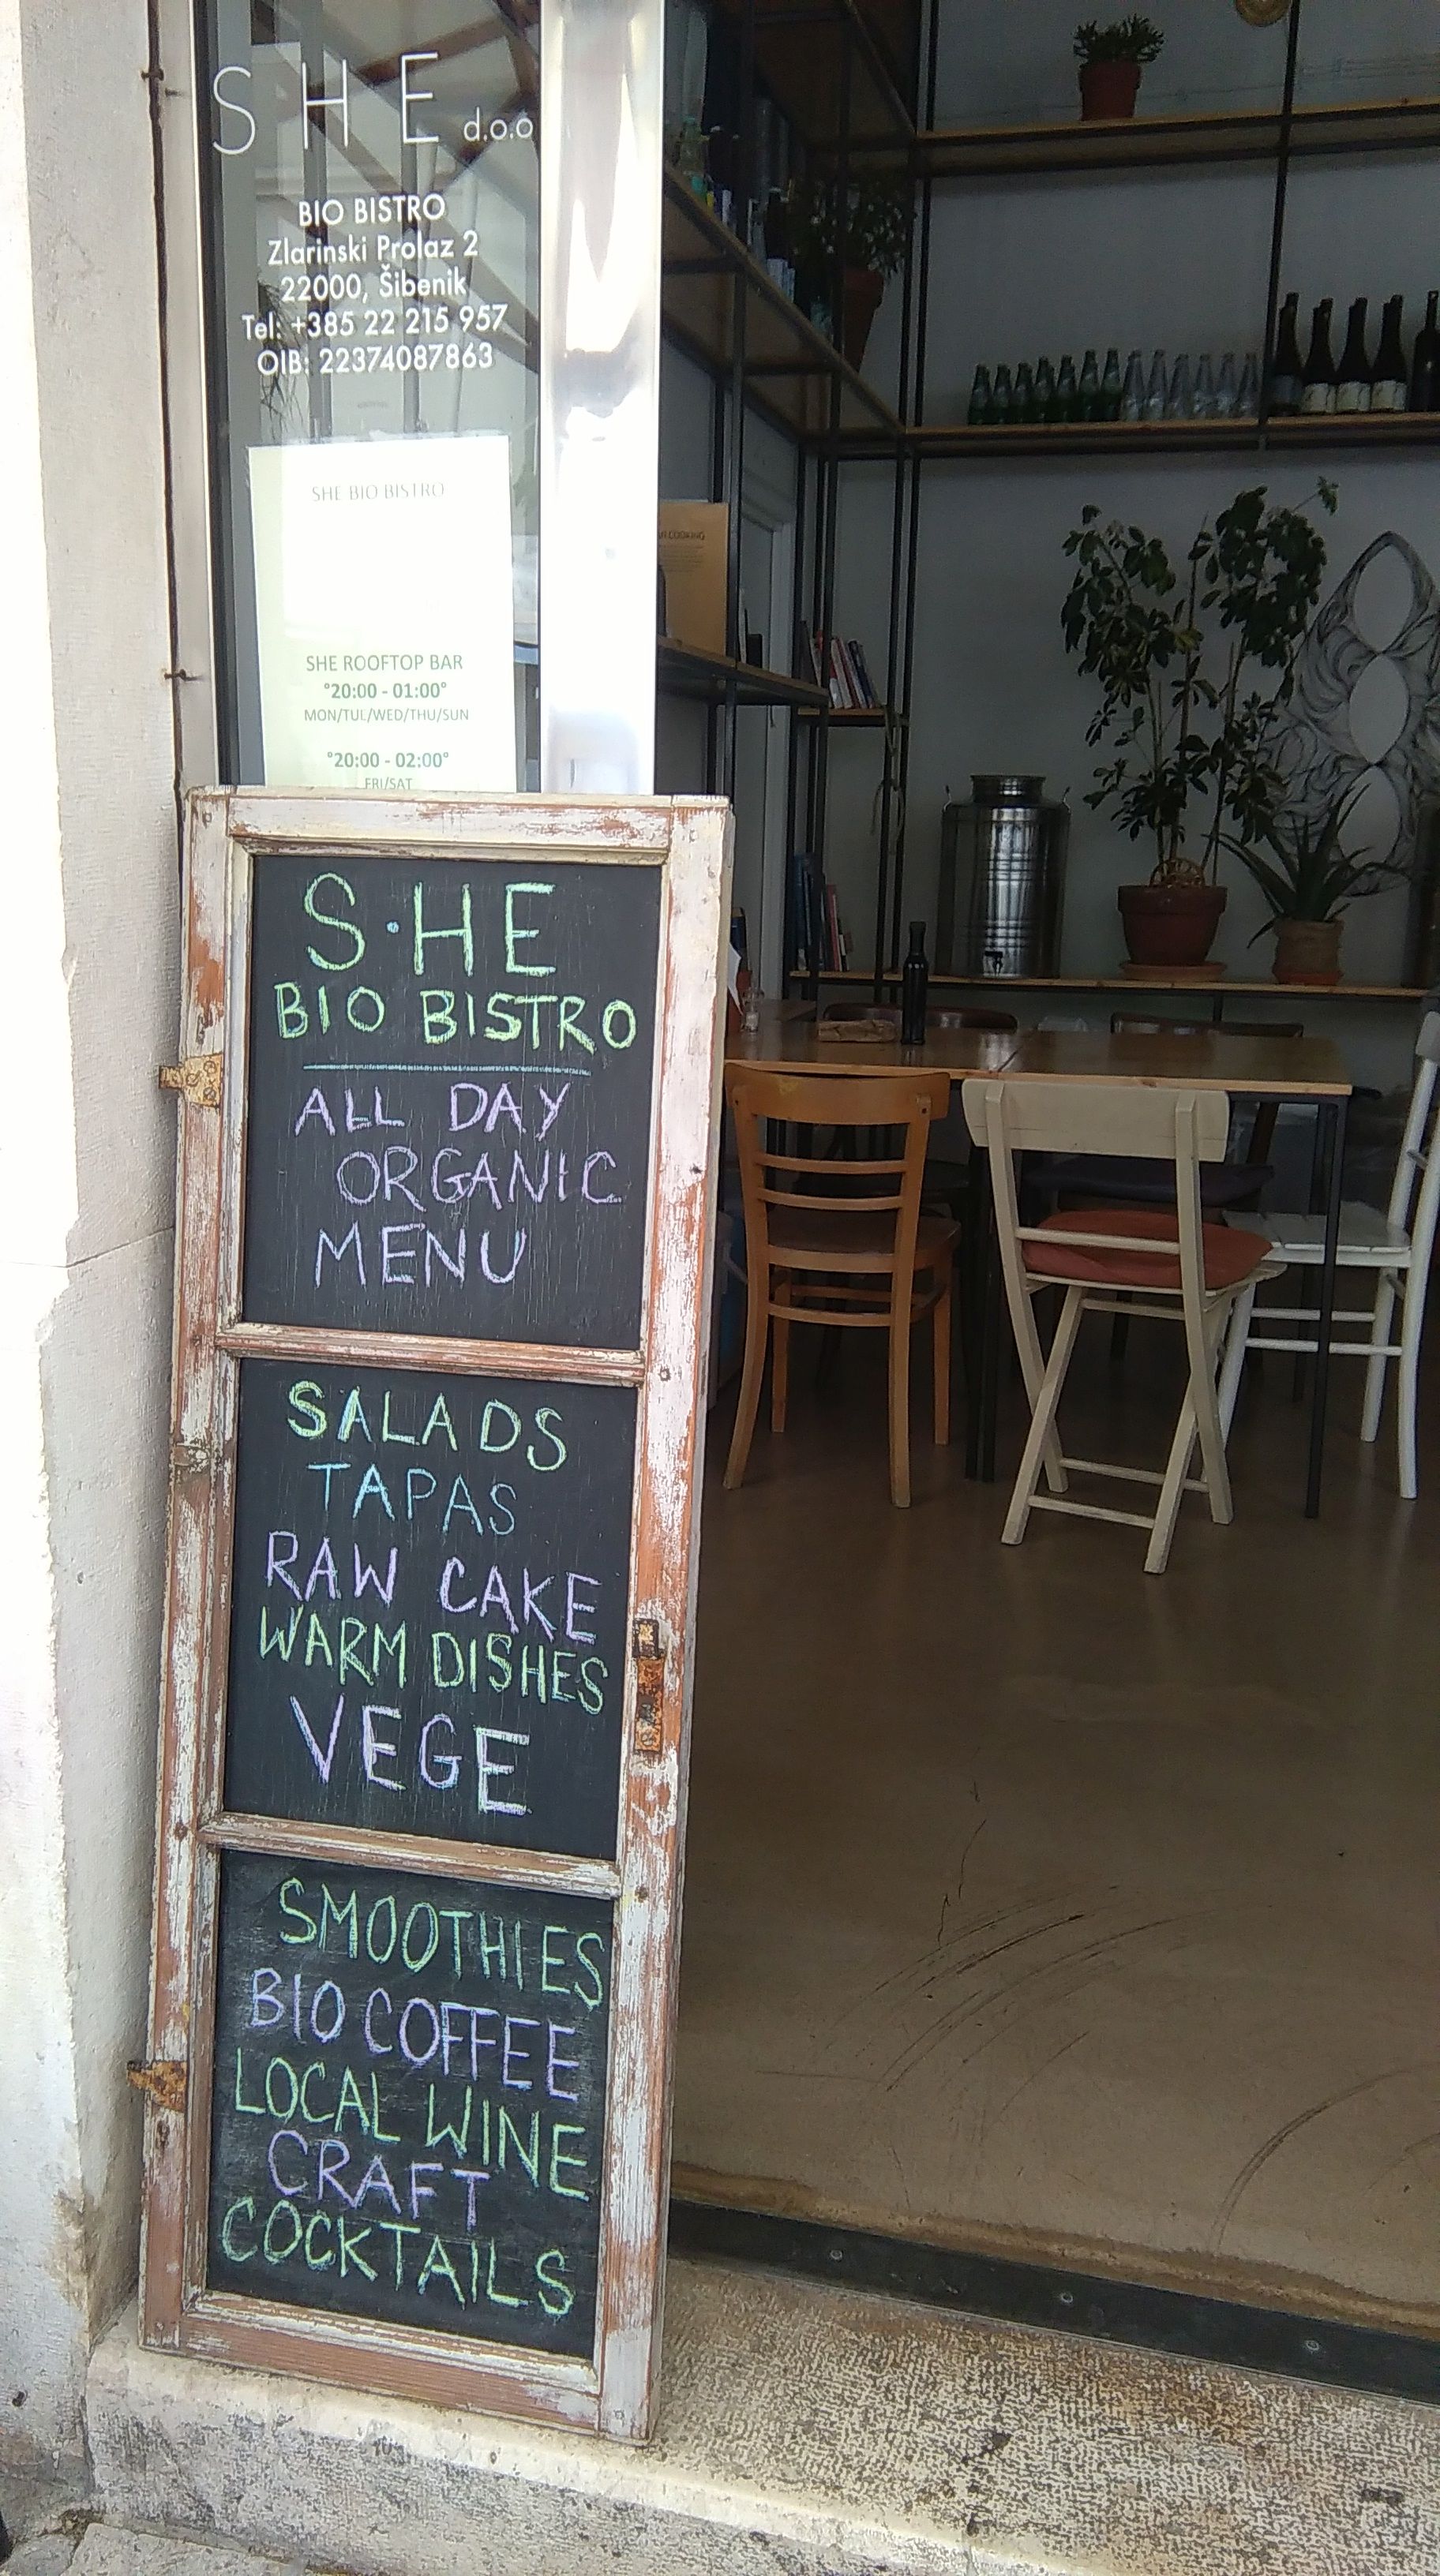 S H E d.o.o
BIO BISTRO
Zlarinski Prolaz 2
22000, Šibenik
Tel: +385 22 215 957
OIB: 22374087863
SHE BIO BISTRO
SHE ROOFTOP BAR
°20:00 - 01:00°
MON/TUE/WED/THU/SUN
°20:00 - 02:00°
FRI/SAT
COOKING
S·HE
BIO BISTRO
ALL DAY
ORGANIC
MENU
SALADS
TAPAS
RAW CAKE
WARM DISHES
VEGE
SMOOTHIES
BIO COFFEE
LOCAL WINE
CRAFT
COCKTAILS